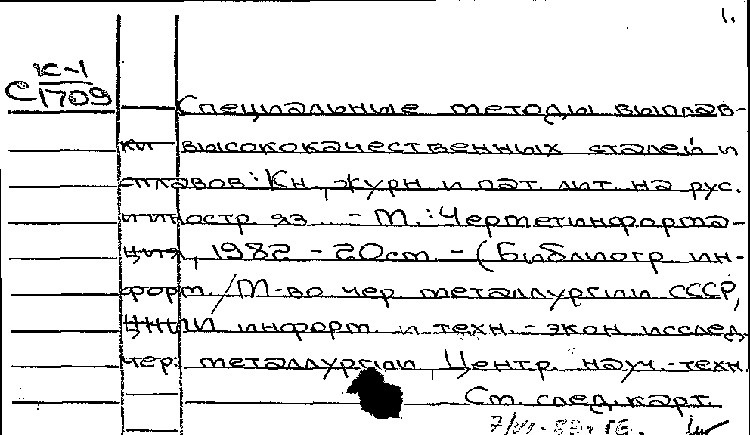 1.
С К-1
1709
Специальные методы выплав-
ки высококачественных сталей и
сплавов: Кн., журн. и пат. лит. на рус.
и иностр. яз. - М.: Черметинформа-
ция, 1982 - 20см. - (Библиогр. ин-
форм. / М-во чер. металлургии СССР,
ЦНИИ информ. и техн.-экон. исслед.
чер. металлургии, Центр. науч.-техн.
См. след. карт.